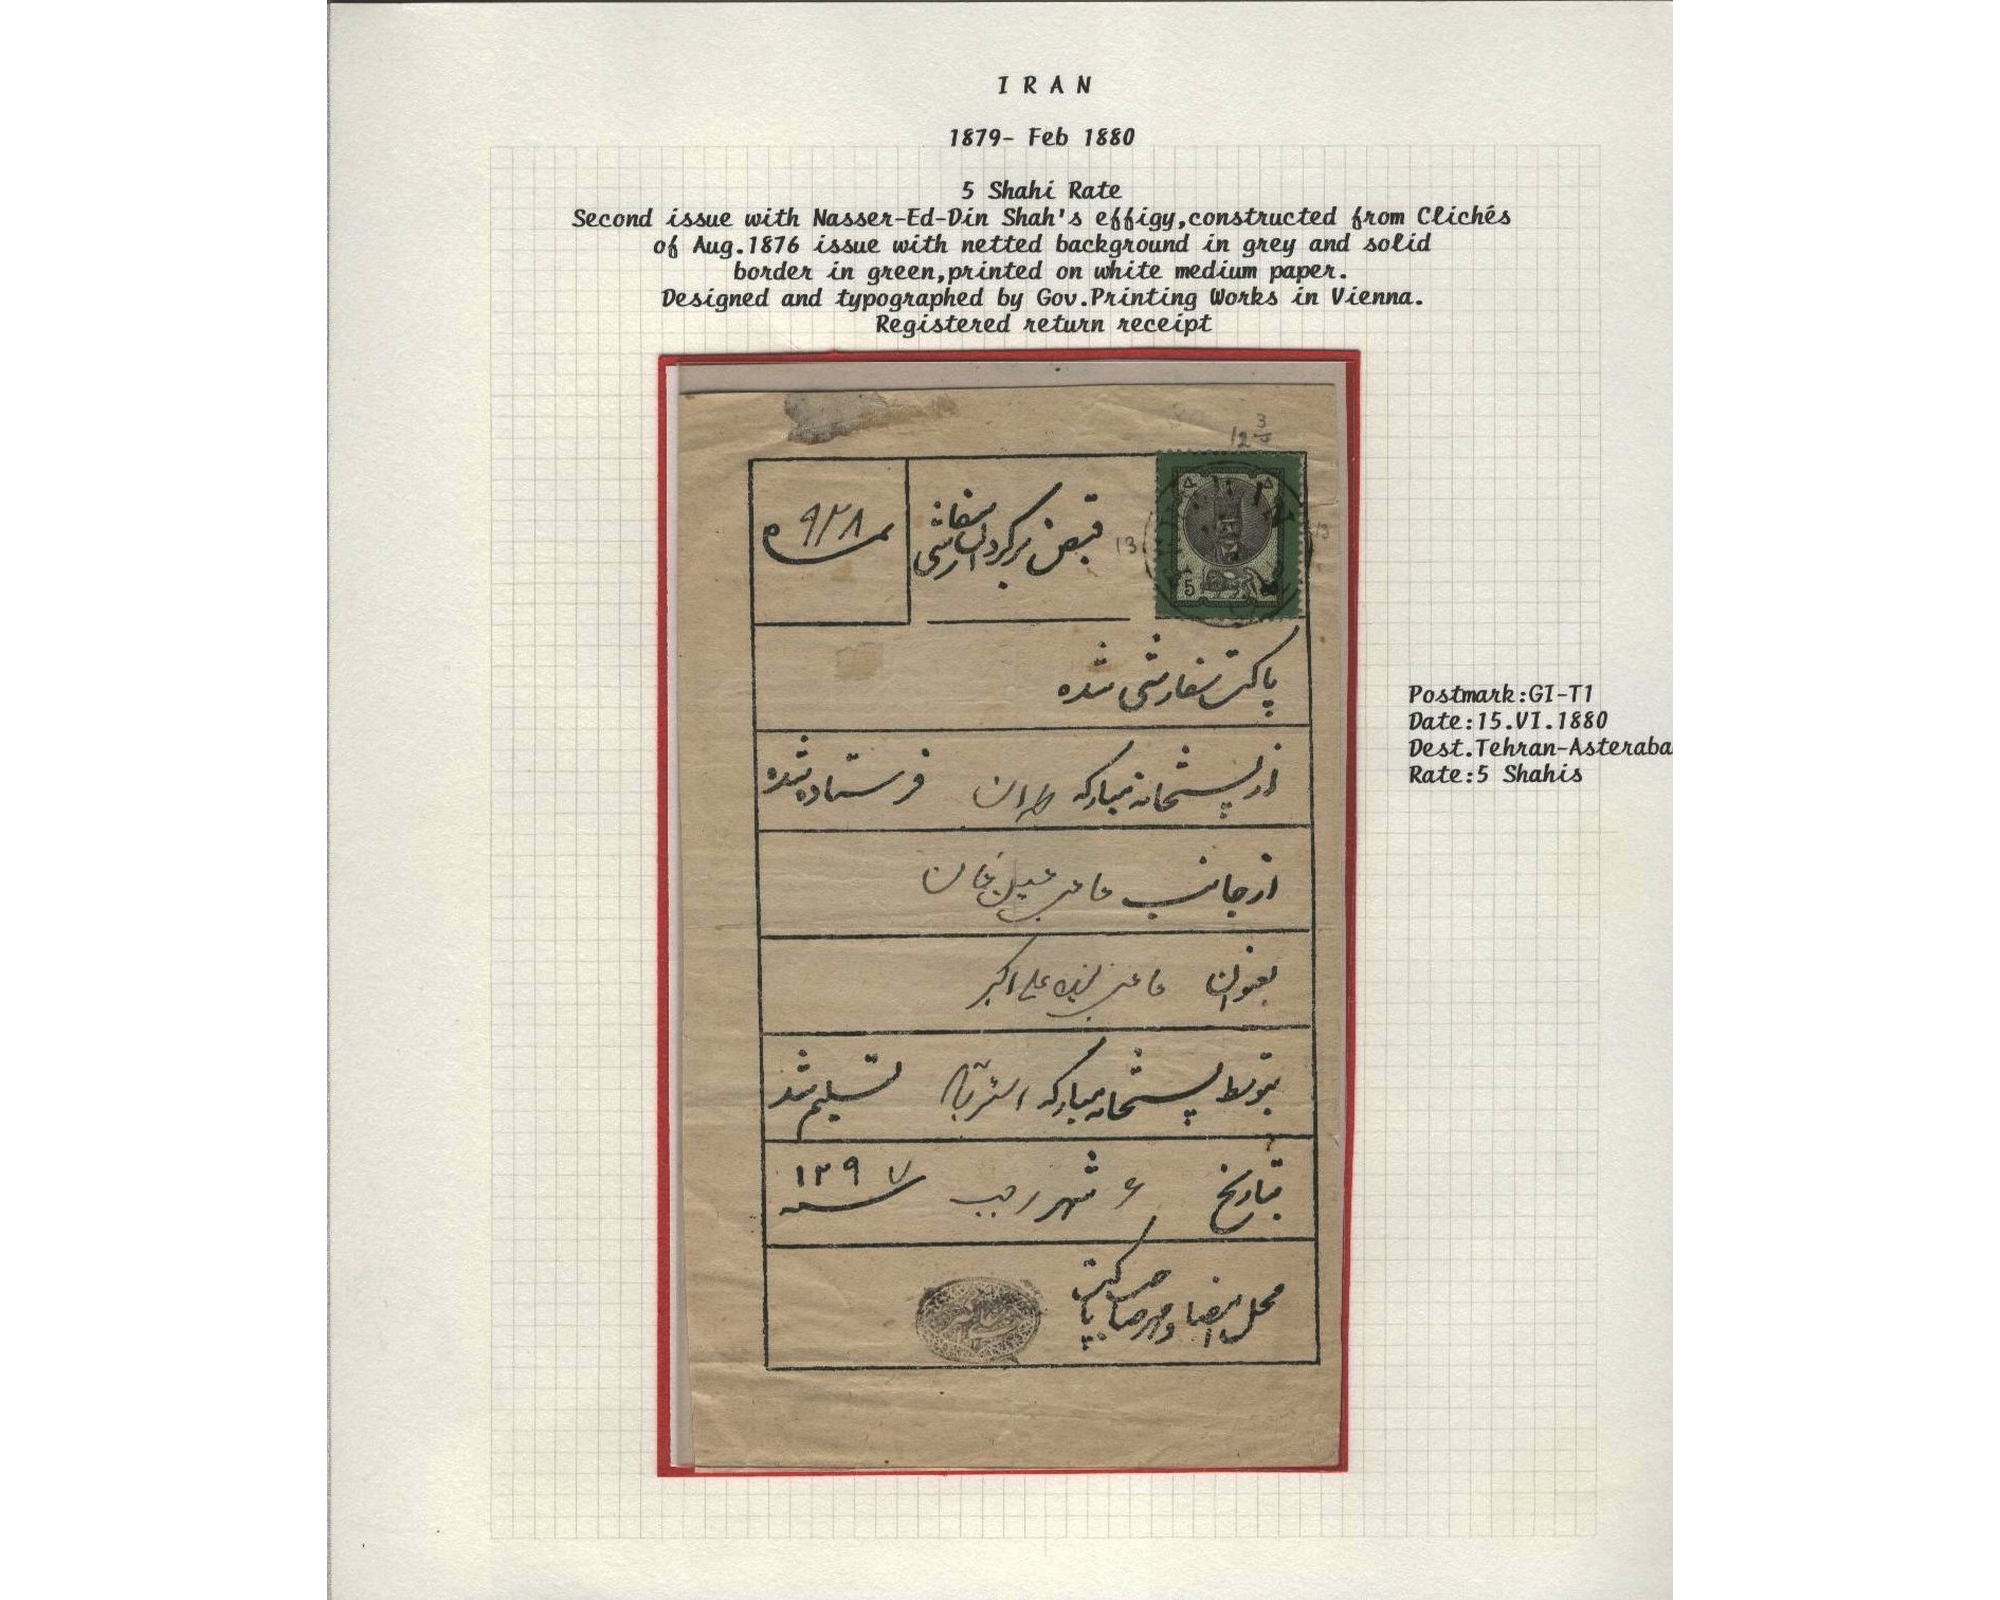 I R A N
1879- Feb 1880
5 Shahi Rate
Second issue with Nasser-Ed-Din Shah's effigy,constructed from Clichés
of Aug.1876 issue with netted background in grey and solid
border in green,printed on white medium paper.
Designed and typographed by Gov.Printing Works in Vienna.
Registered return receipt
12 3/4
13
13
۵ ۵
5
قبض برگردان سفارشی
نمره ۹۲۸
پاکت سفارشی شده
از پستخانه مبارکه طهران فرستاده شده
از جانب خان
بعنوان علی اکبر
بتوسط پستخانه مبارکه استرآباد تسلیم شد
بتاریخ ۶ شهر رجب سنه ۱۲۹۷
محل امضا و مهر صاحب پاکت
Postmark:GI-T1
Date:15.VI.1880
Dest.Tehran-Asteraba
Rate:5 Shahis